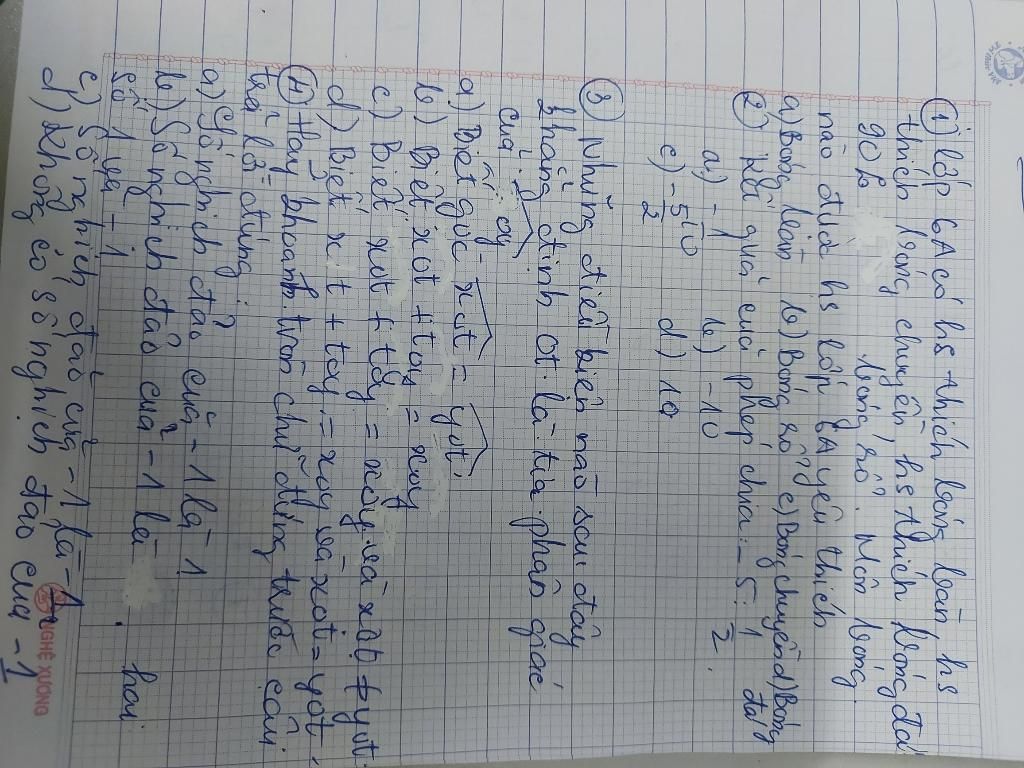 ① lớp 6A có hs thích bóng bàn hs
thích bóng chuyền, hs thích bóng đá
90% bóng rổ. Môn bóng
nào được hs lớp 6A yêu thích
a) Bóng bàn b) Bóng rổ c) Bóng chuyền d) Bóng đá
② Kết quả của phép chia -5 : 1/2
a) -1/10 b) -10
c) -5/2 d) 10
③ Những điều kiện nào sau đây
khẳng định ot là tia phân giác
của góc
a) Biết góc xot = yot
b) Biết xot + toy = xoy
c) Biết xot + toy = xoy và xot ≠ yot
d) Biết xot + toy = xoy và xot = yot
④ Hãy khoanh tròn chữ đứng trước câu
trả lời đúng
a) Số nghịch đảo của -1 là 1
b) Số nghịch đảo của -1 là hai
số 1 và -1
c) Số nghịch đảo của -1 là -1
d) Không có số nghịch đảo của -1
NGHÊ XƯƠNG